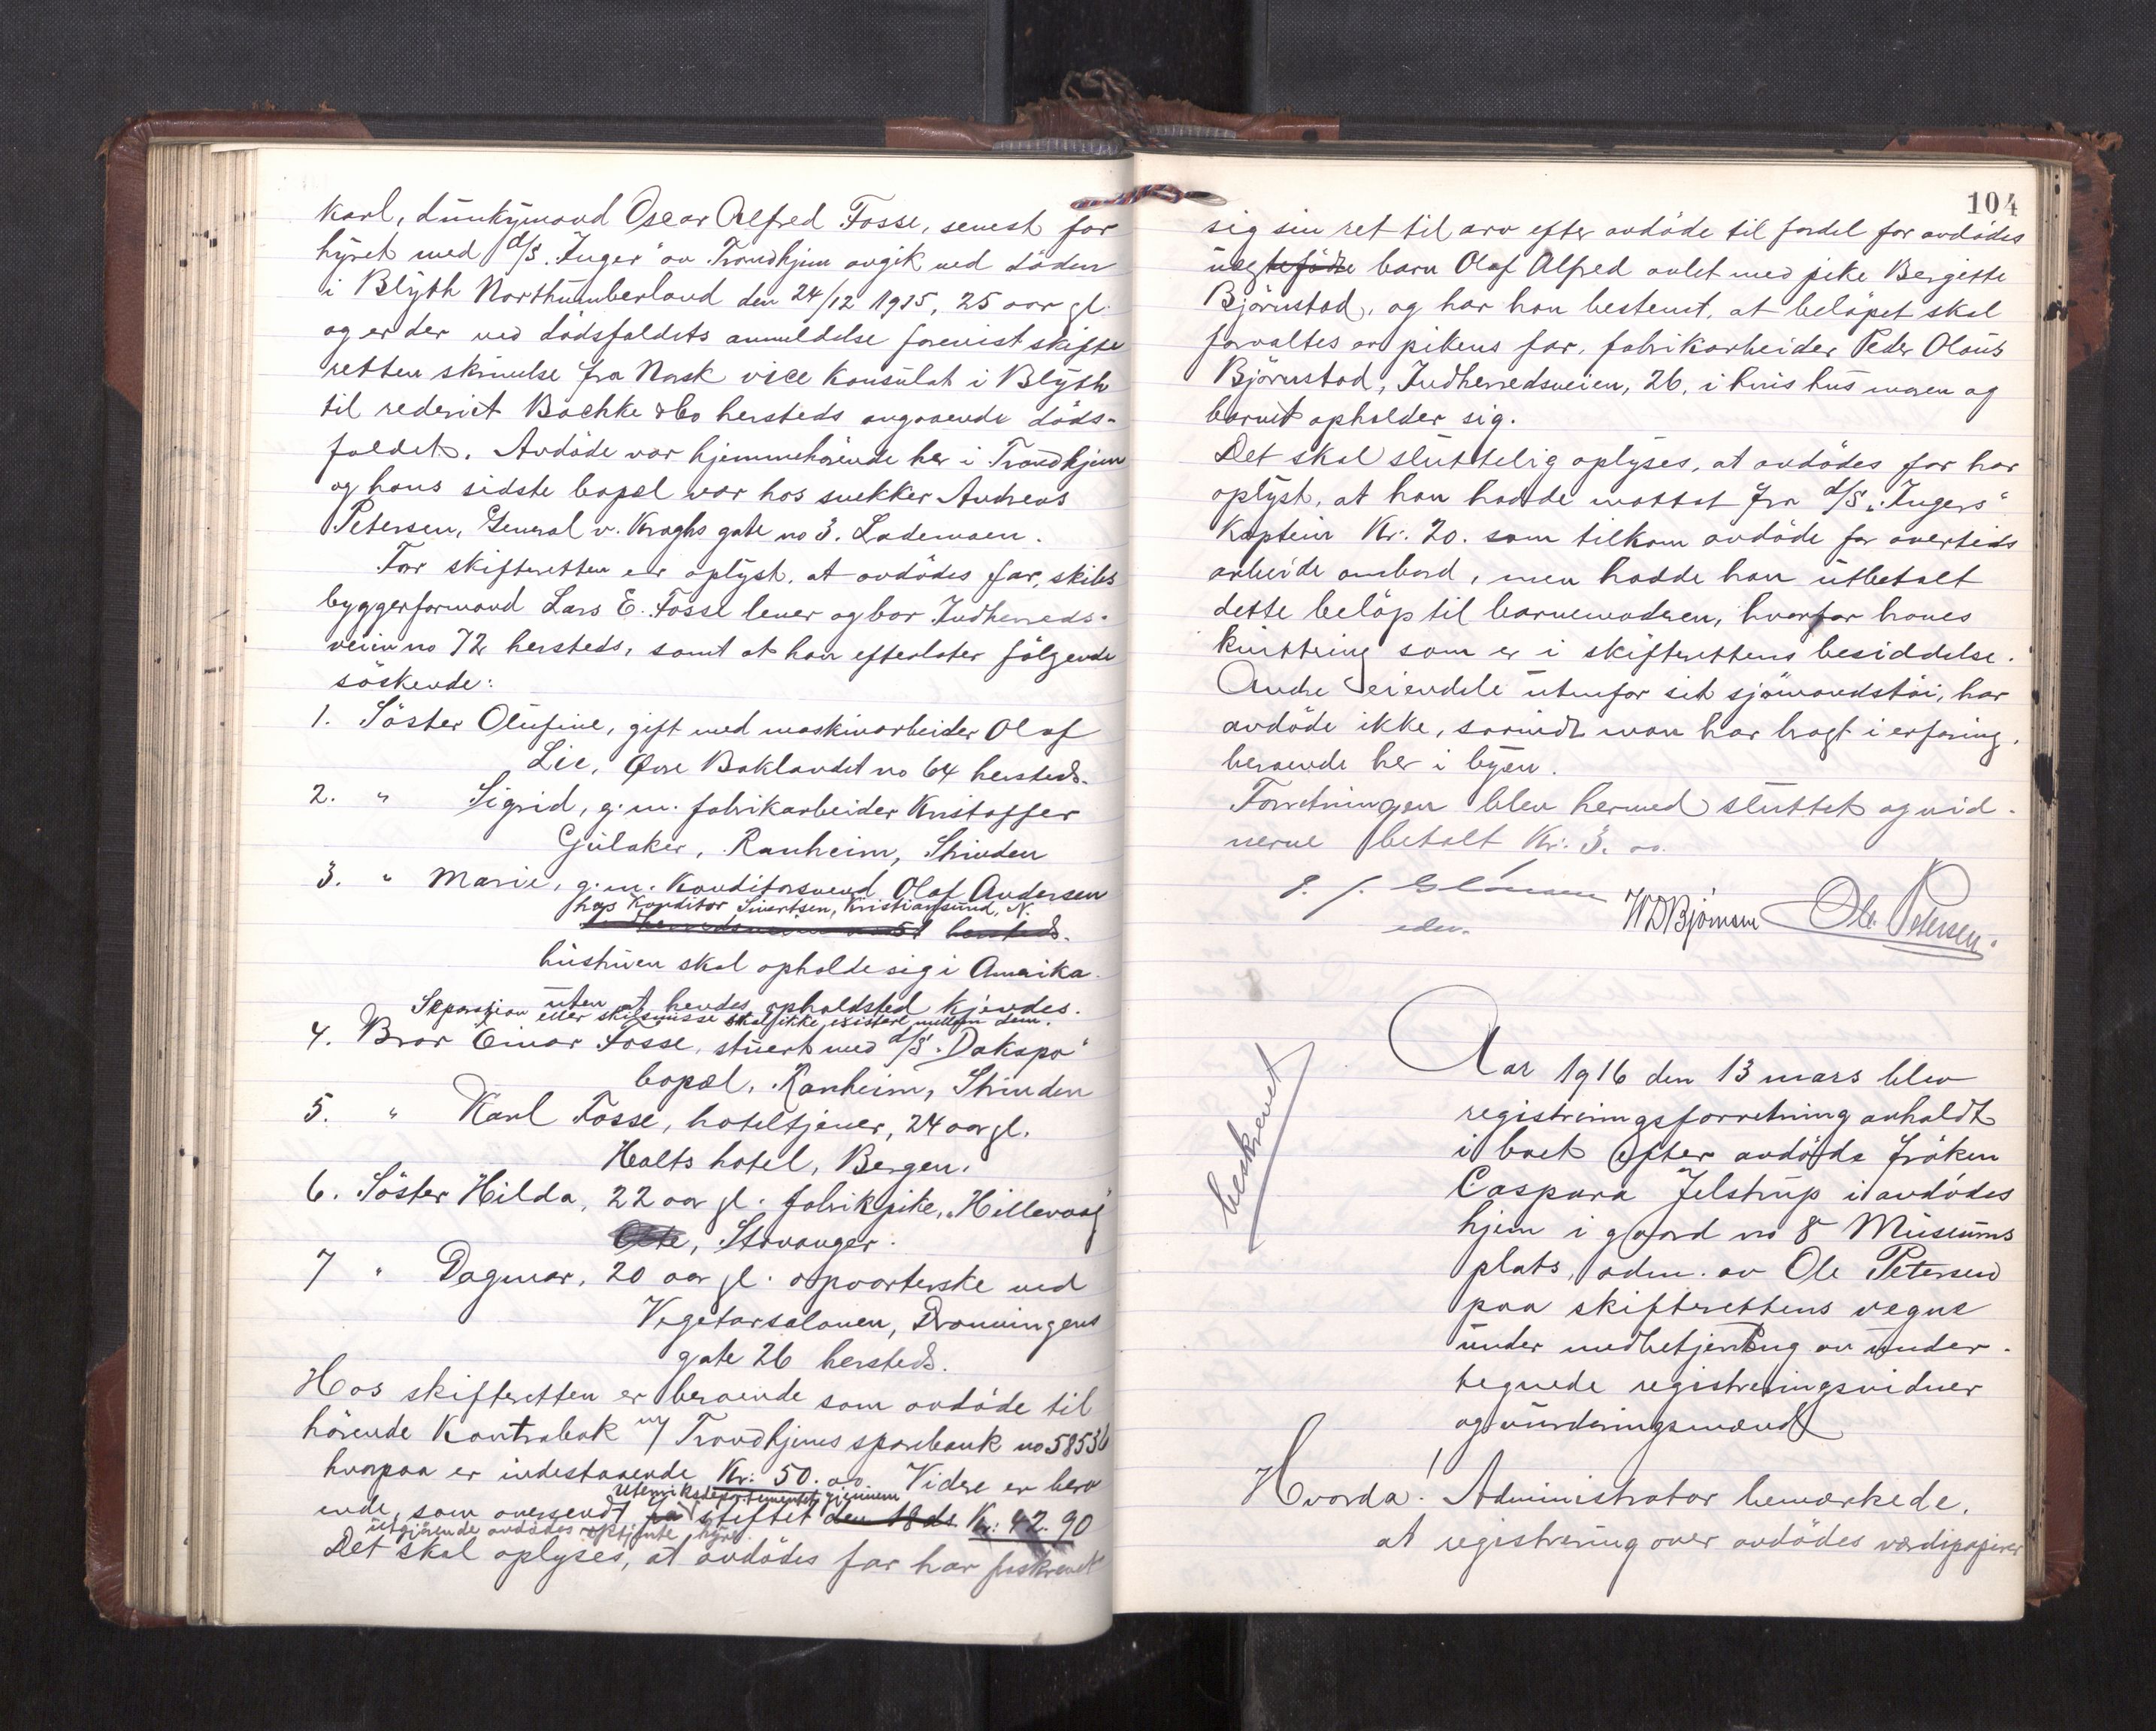 Karl, dunkymand Oscar Alfred Fosse, senest for
hyret med d/s. "Inger" av Trondhjem avgik ved döden
i Blyth Northumberland den 24/12 1915, 25 aar gl.
og er der ved dödsfaldets anmeldelse forevist skifte
retten skrivelse fra Norsk vice Konsulat i Blyth
til rederiet Bachke & Co hersteds angaaende döds-
faldet. Avdöde var hjemmehörende her i Trondhjem
og hans sidste bopæl var hos snekker Andreas
Petersen, General v. Kroghs gate no 3. Lademoen.
For skifteretten er oplyst, at avdödes far, skibs
byggerformand Lars E. Fosse lever og bor Indherreds-
veien no 72 hersteds, samt at han efterlater fölgende
söskende:
1. Söster Olufine, gift med maskinarbeider Olaf
Lie, Övre Baklandet no 64 hersteds.
2. " Sigrid, g. m. fabrikarbeider Kristoffer
Gulaker, Ranheim, Strinden
3. " Marie, g. m. Konditorsvend Olaf Andersen
hos Konditor Sivertsen, Kristiansund, N.
hersteds.
hustruen skal opholde sig i Amerika
uten at hendes opholdsted kjendes.
Separasjon eller skilsmisse skal ikke existere mellem dem.
4. Bror Einar Fosse, stuert med d/s "Dakapo"
bopæl, Ranheim, Strinden
5. " Karl Fosse, hoteltjener, 24 aar gl.
Holts hotel, Bergen.
6. Söster Hilda, 22 aar gl. fabrikpike, "Hillevaag"
, Stavanger.
7 " Dagmar, 20 aar gl. opvarterske ved
Vegetarsalonen, Dronningens
gate 26 hersteds.
Hos skifteretten er beroende som avdöde til
hörende Kontrabok m/ Trondhjems sparebank no 58536
hvorpaa er indestaaende Kr: 50.00. Videre er bero
utenriksdepartementet gjennem
ende, som oversendt fra stiftet den 18 ds. Kr: 42.90
utgjörende avdödes optjente hyre.
Det skal oplyses, at avdödes far har fraskrevet
104
sig sin ret til arv efter avdöde til fordel for avdödes
uegtefödte barn Olaf Alfred avlet med pike Bergitte
Björnstad, og har han bestemt, at belöpet skal
forvaltes av pikens far, fabrikarbeider Peder Olaus
Björnstad, Indherredsveien, 26, i hvis hus moren og
barnet opholder sig.
Det skal sluttelig oplyses, at avdödes far har
oplyst, at han hadde mottat fra d/s "Ingers"
Kaptein Kr. 20. som tilkom avdöde for overtids
arbeide ombord, men hadde han utbetalt
dette belöp til barnemoderen, hvorfor haves
kvittering som er i skifterettens besiddelse.
Andre eiendele utenfor sit sjömandstöi, har
avdöde ikke, saavidt man har bragt i erfaring,
beroende her i byen.
Forretningen blev hermed sluttet og vid-
nerne betalt Kr: 3.00.
edv. WDBjörnson Ole Petersen.
beskrevet
Aar 1916 den 13 mars blev
registreringsforretning avholdt
i boet efter avdöde fröken
Caspara Jelstrup i avdödes
hjem i gaard no 8 Museums
plats, adm. av Ole Petersen
paa skifterettens vegne
under medbetjening av under-
tegnede registreringsvidner
og vurderingsmænd
Hvorda! Administrator bemærkede,
at registrering over avdödes værdipapirer